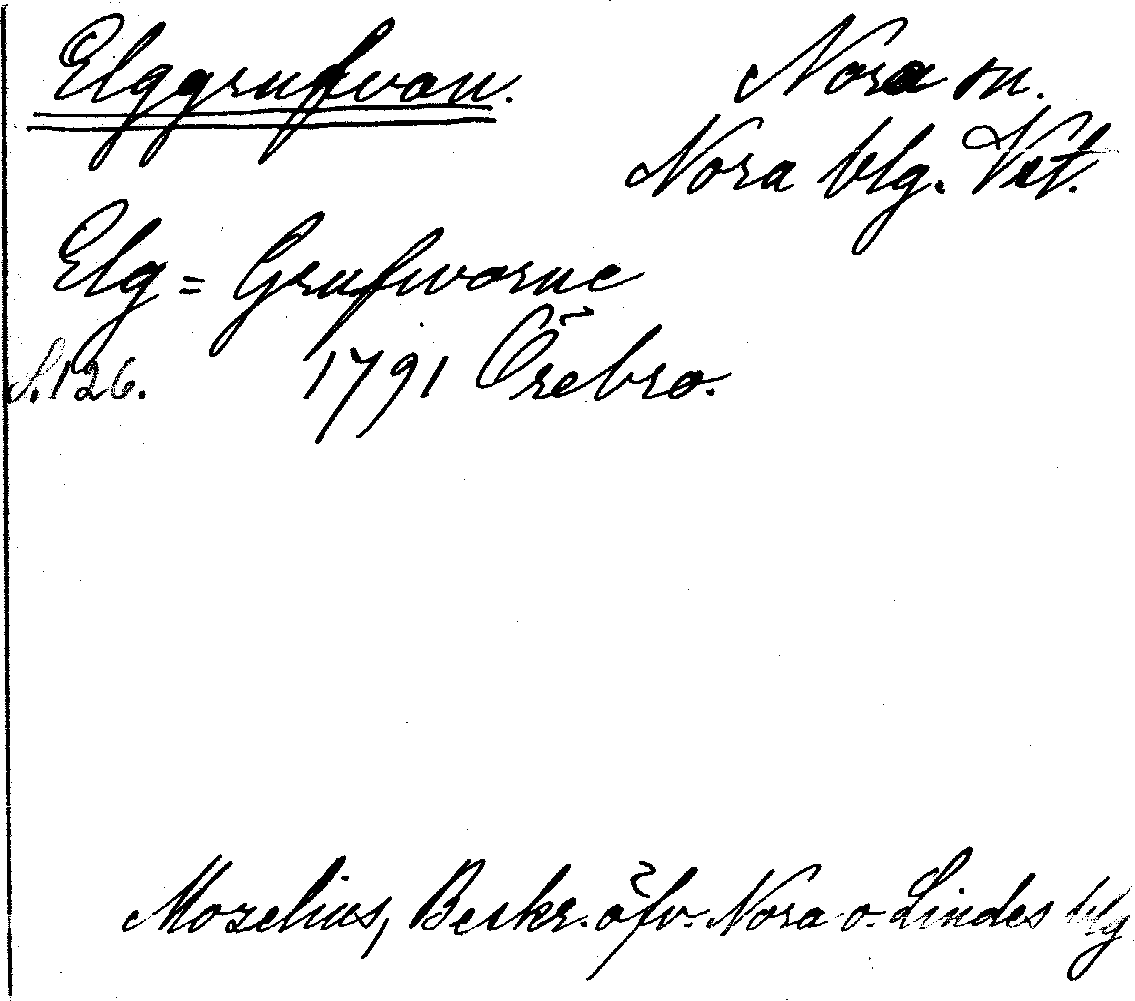 Elggrufvan.
Nora sn.
Nora blg. Vstl.
Elg=Grufworne
S. 126. 1791 Örebro.
Mozelius, Beskr. öfv. Nora o. Lindes blg